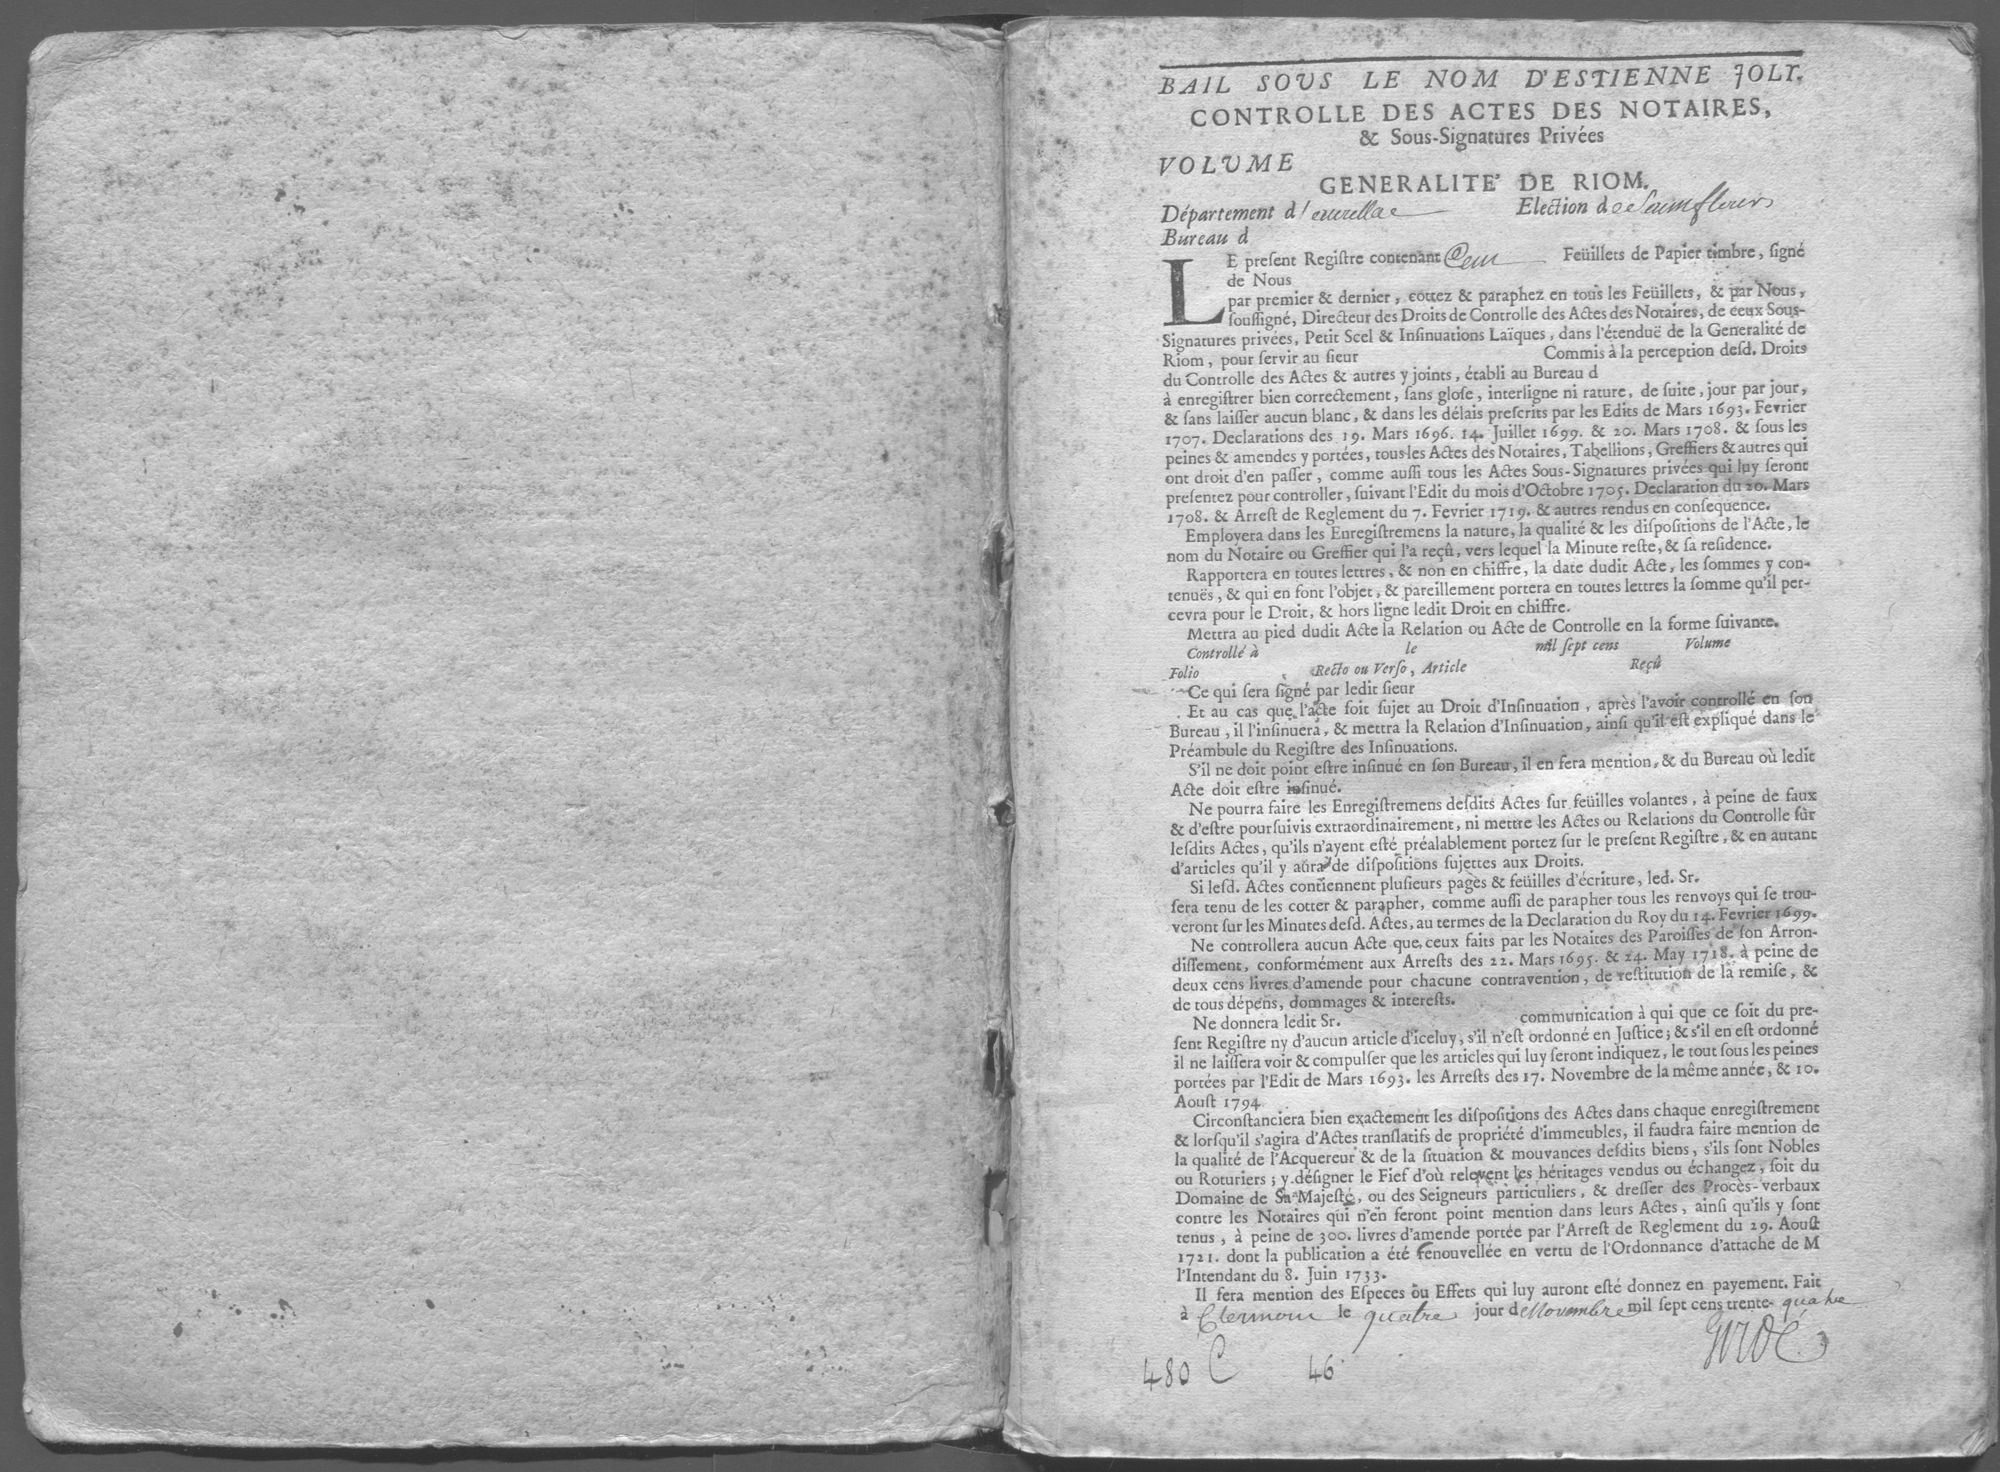 BAIL SOUS LE NOM D'ESTIENNE JOLY.
CONTROLLE DES ACTES DES NOTAIRES,
& Sous-Signatures Privées
VOLUME
GENERALITE' DE RIOM.
Département d' Election de Sainflour
Bureau d
LE present Registre contenant Cent Feüillets de Papier timbre, signé
de Nous
par premier & dernier, cottez & paraphez en tous les Feüillets, & par Nous,
soussigné, Directeur des Droits de Controlle des Actes des Notaires, de ceux Sous-
Signatures privées, Petit Scel & Insinuations Laïques, dans l'étenduë de la Generalité de
Riom, pour servir au sieur Commis à la perception desd. Droits
du Controlle des Actes & autres y joints, établi au Bureau d
à enregistrer bien correctement, sans glose, interligne ni rature, de suite, jour par jour,
& sans laisser aucun blanc, & dans les délais prescrits par les Edits de Mars 1693. Fevrier
1707. Declarations des 19. Mars 1696. 14. Juillet 1699. & 20. Mars 1708. & sous les
peines & amendes y portées, tous les Actes des Notaires, Tabellions, Greffiers & autres qui
ont droit d'en passer, comme aussi tous les Actes Sous-Signatures privées qui luy seront
presentez pour controller, suivant l'Edit du mois d'Octobre 1705. Declaration du 20. Mars
1708. & Arrest de Reglement du 7. Fevrier 1719. & autres rendus en consequence.
Employera dans les Enregistremens la nature, la qualité & les dispositions de l'Acte, le
nom du Notaire ou Greffier qui l'a reçû, vers lequel la Minute reste, & sa residence.
Rapportera en toutes lettres, & non en chiffre, la date dudit Acte, les sommes y con-
tenuës, & qui en font l'objet, & pareillement portera en toutes lettres la somme qu'il per-
cevra pour le Droit, & hors ligne ledit Droit en chiffre.
Mettra au pied dudit Acte la Relation ou Acte de Controlle en la forme suivante.
Controllé à le mil sept cens Volume
Folio Recto ou Verso, Article Reçû
Ce qui sera signé par ledit sieur
Et au cas que l'acte soit sujet au Droit d'Insinuation, après l'avoir controllé en son
Bureau, il l'insinuera, & mettra la Relation d'Insinuation, ainsi qu'il est expliqué dans le
Préambule du Registre des Insinuations.
S'il ne doit point estre insinué en son Bureau, il en fera mention, & du Bureau où ledit
Acte doit estre insinué.
Ne pourra faire les Enregistremens desdits Actes sur feüilles volantes, à peine de faux
& d'estre poursuivis extraordinairement, ni mettre les Actes ou Relations du Controlle sur
lesdits Actes, qu'ils n'ayent esté préalablement portez sur le present Registre, & en autant
d'articles qu'il y aura de dispositions sujettes aux Droits.
Si lesd. Actes contiennent plusieurs pages & feüilles d'écriture, led. Sr.
sera tenu de les cotter & parapher, comme aussi de parapher tous les renvoys qui se trou-
veront sur les Minutes desd. Actes, au termes de la Declaration du Roy du 14. Fevrier 1699.
Ne controllera aucun Acte que ceux faits par les Notaires des Paroisses de son Arron-
dissement, conformément aux Arrests des 22. Mars 1695. & 24. May 1718. à peine de
deux cens livres d'amende pour chacune contravention, de restitution de la remise, &
de tous dépens, dommages & interests.
Ne donnera ledit Sr. communication à qui que ce soit du pre-
sent Registre ny d'aucun article d'iceluy, s'il n'est ordonné en Justice; & s'il en est ordonné
il ne laissera voir & compulser que les articles qui luy seront indiquez, le tout sous les peines
portées par l'Edit de Mars 1693. les Arrests des 17. Novembre de la même année, & 10.
Aoust 1794
Circonstanciera bien exactement les dispositions des Actes dans chaque enregistrement
& lorsqu'il s'agira d'Actes translatifs de propriété d'immeubles, il faudra faire mention de
la qualité de l'Acquereur & de la situation & mouvances desdits biens, s'ils sont Nobles
ou Roturiers; y désigner le Fief d'où relevent les héritages vendus ou échangez, soit du
Domaine de Sa Majesté, ou des Seigneurs particuliers, & dresser des Procès-verbaux
contre les Notaires qui n'en feront point mention dans leurs Actes, ainsi qu'ils y sont
tenus, à peine de 300. livres d'amende portée par l'Arrest de Reglement du 29. Aoust
1721. dont la publication a été renouvellée en vertu de l'Ordonnance d'attache de M
l'Intendant du 8. Juin 1733.
Il fera mention des Especes ou Effets qui luy auront esté donnez en payement. Fait
à Clermont le quatre jour de Novembre mil sept cens trente-quatre
480 C 46